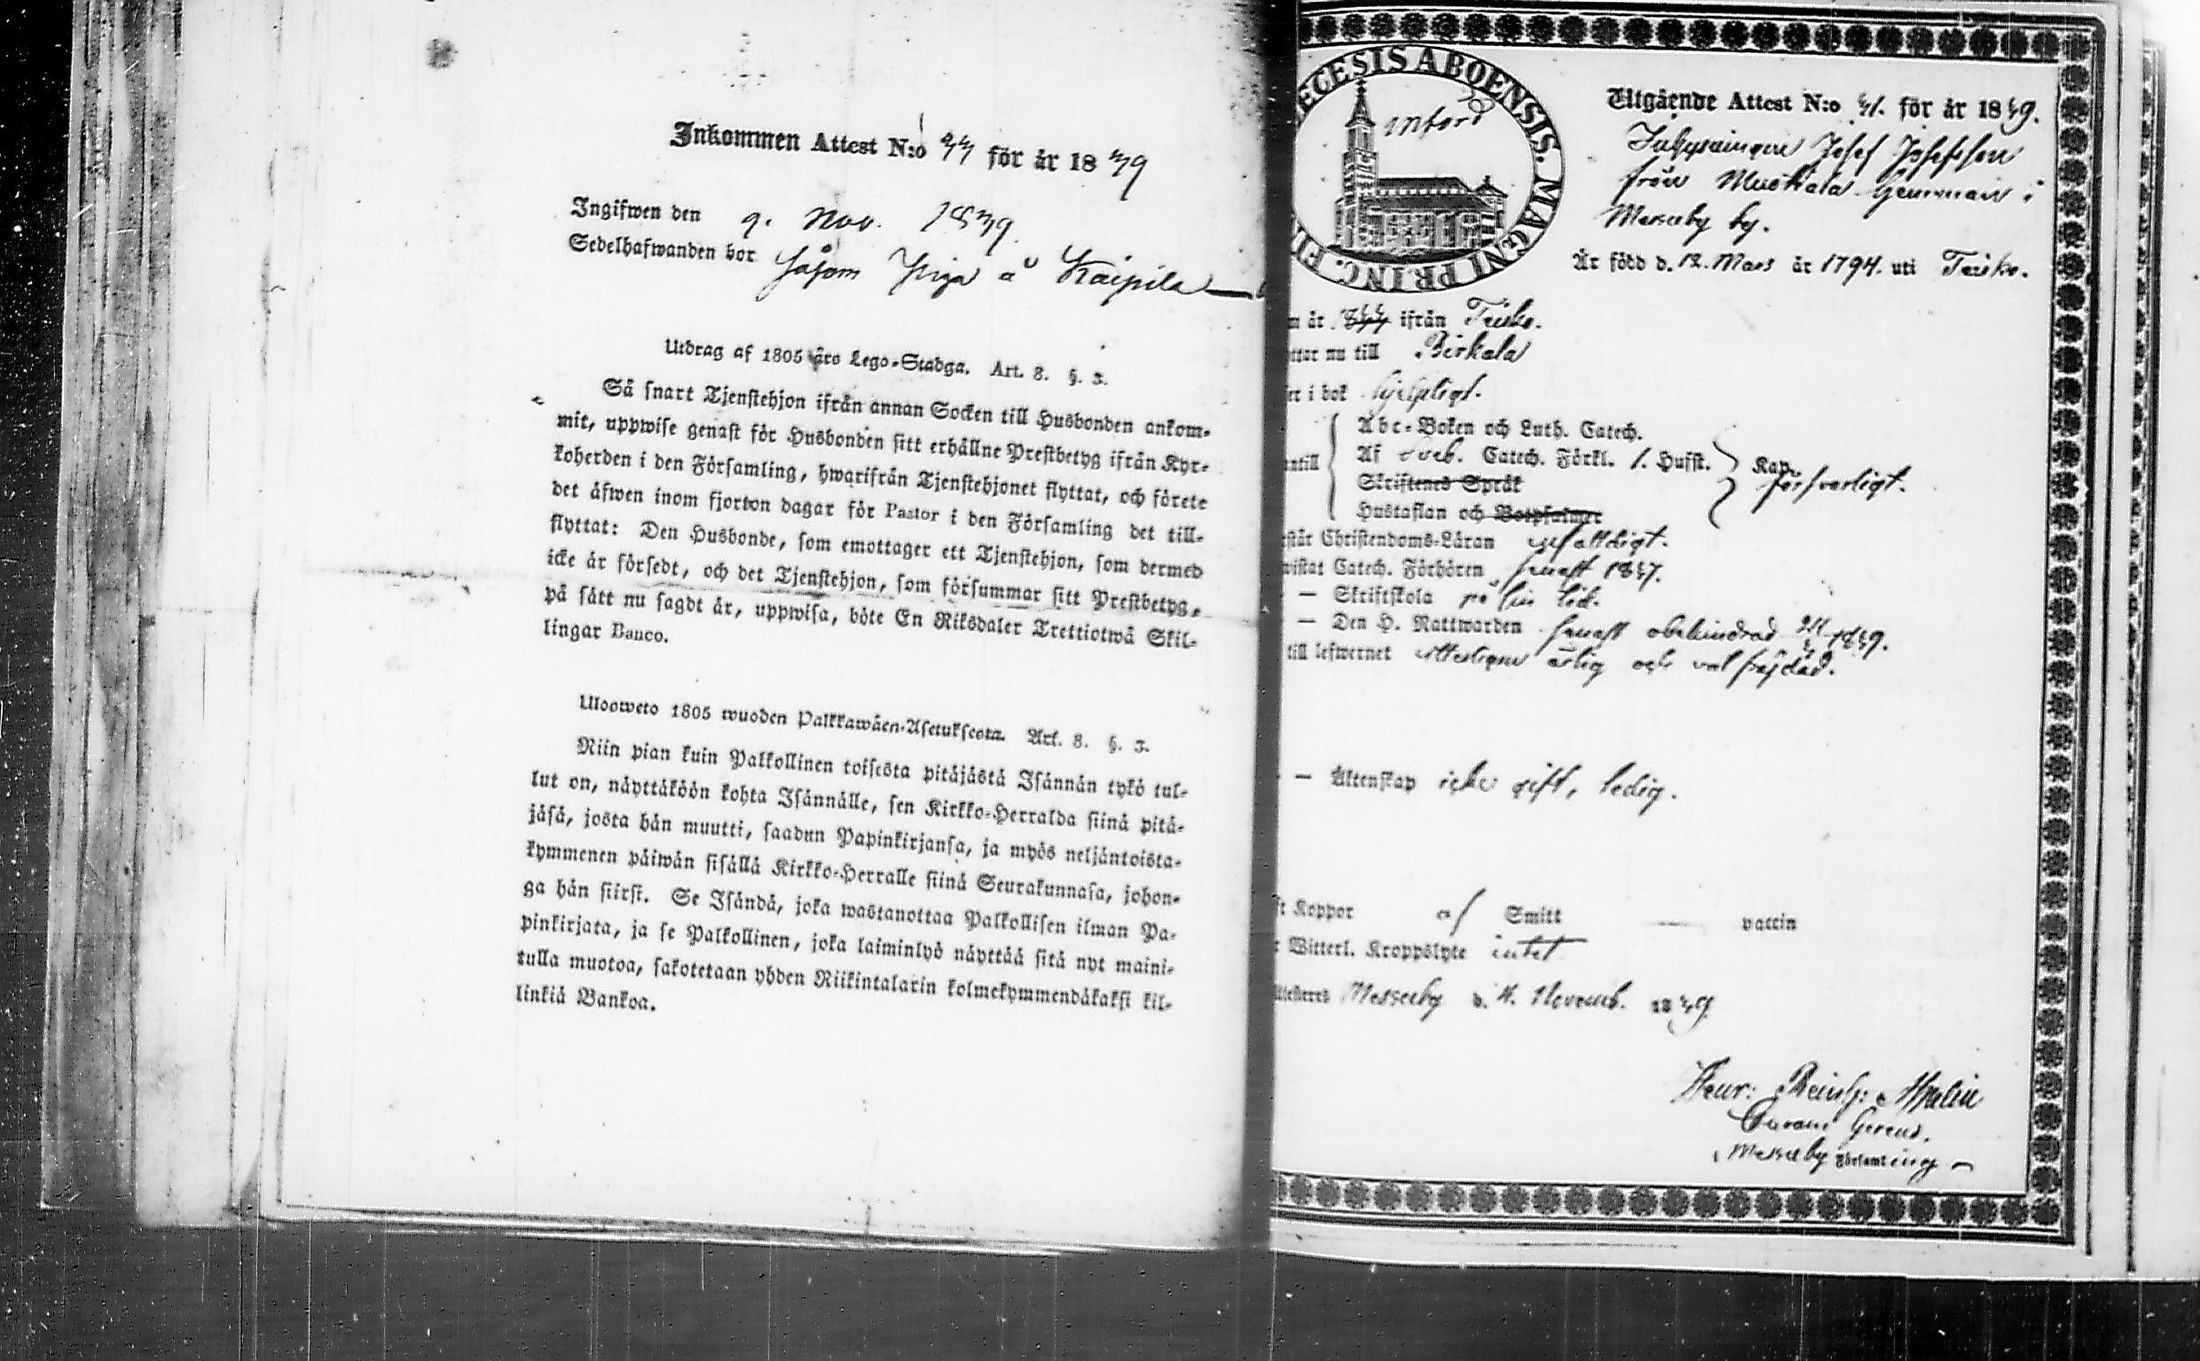 Inkommen Attest N:o för år 18
Ingifwen den 9. Nov.
Sedelhafwanden bor såsom Piga å Kaipila
Utdrag af 1805 års Lego-Stadga. Art. 8. §. 3.
Så snart Tjenstehjon ifrån annan Socken till Husbonden ankom-
mit, uppwise genast för Husbonden sitt erhållne Prestbetyg ifrån Kyr-
koherden i den Församling, hwarifrån Tjenstehjonet flyttat, och förete
det äfwen inom fjorton dagar för Pastor i den Församling det till-
flyttat: Den Husbonde, som emottager ett Tjenstehjon, som dermed
icke är försedt, och det Tjenstehjon, som försummar sitt Prestbetyg,
på sätt nu sagdt är, uppwisa, böte En Riksdaler Trettiotwå Skil-
lingar Banco.
Uloswето 1805 wuoden Palkkawäen-Asetuksesta. Art. 8. §. 3.
Niin pian kuin Palkollinen toisesta pitäjästä Isännän tykö tul-
lut on, näyttäköön kohta Isännälle, sen Kirkko-Herralda siinä pitä-
jäsä, josta hän muutti, saadun Papinkirjansa, ja myös neljäntoista-
kymmenen päiwän sisällä Kirkko-Herralle siinä Seurakunnasa, johon-
ga hän siirsi. Se Isändä, joka wastanottaa Palkollisen ilman Pa-
pinkirjata, ja se Palkollinen, joka laiminlyö näyttää sitä nyt maini-
tulla muotoa, sakotetaan yhden Riikintalarin kolmekymmendäkaksi kil-
linkiä Bankoa.
ECESIS ABOENSIS. MAGNI PRINC. FI
införd
Utgående Attest N:o för år 18
Josef Josefsson
från Mustala hemman i
Messuby by.
Är född d. 12. Mars år 1794. uti Teisko.
m år ifrån Teisko.
ttar nu till Birkala
er i bok hjelpligt.
ntill
Abc-Boken och Luth. Catech.
Af Sveb. Catech. Förkl. 1. Hufst. Kap.
försvarligt.
Skriftenes Språk
Hustaflan och Botpsalmer
står Christendoms-Läran enfaldigt.
wistat Catech. Förhören senast
— Skriftskola på sin tid.
— Den H. Nattwarden senast obehindrad
till lefwernet ärlig och väl frejdad.
— Äktenskap icke gift, ledig.
t Koppor af Smitt — vaccin
r Witterl. Kroppslyte intet
Messuby d. 4. Novemb. 18
Henr: Malin
Messuby Församling